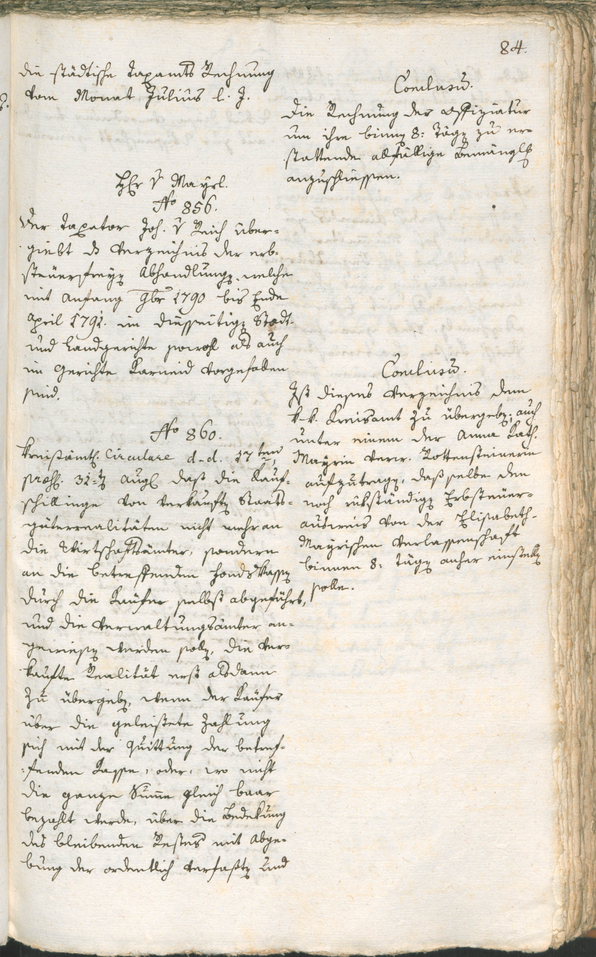 84.
die städtische Taxamts Rechnung
vom Monat Julius l. J.
Conclusū.
Die Rechnung der Offiziatur
um ihre binnen 8: Tägen zu er-
stattende allfällige Bemänglg
anzuschliessen.
Hr v Mayrl.
No 856.
Der Taxator Joh. v Reich über-
giebt ds Verzeichnis der erb-
steuerfreyen Abhandlungen, welche
mit Anfang 9br 1790 bis Ende
April 1791. in diesseitigen Stadt-
und Landgerichte sowohl als auch
im Gerichte Karneid vorgefallen
sind.
Conclusū.
Ist dieses Verzeichnis dem
k. k. Kreisamt zu übergeben; auch
unter einem der Anna Kath.
Mayrin verw. Rottensteinerin
aufzutragen, daß selbe den
noch rükständigen Erbsteuer-
ausweis von der Elisabeth-
Mayrischen Verlassenschaft
binnen 8: Tägen anher einstellen
solle.
No 860.
Kreisämtl. Circulare d. d. 17ten
prss. 31: Augl. daß die Kauf-
schillinge von verkauften Staats-
güterrealitäten nicht mehr an
die Wirtschaftsämter, sondern
an die betreffenden Fondskassen
durch die Käufer selbst abgeführt,
und die Verwaltungsämter an-
gewiesen werden sollen, die ver-
kaufte Realität erst alsdann
zu übergeben, wenn der Käufer
über die geleistete Zahlung
sich mit der Quittung der betref-
fenden Kasse, oder, wo nicht
die ganze Summe gleich baar
bezahlt werde, über die Bedekung
des bleibenden Restes mit Abge-
bung der ordentlich verfaßten und